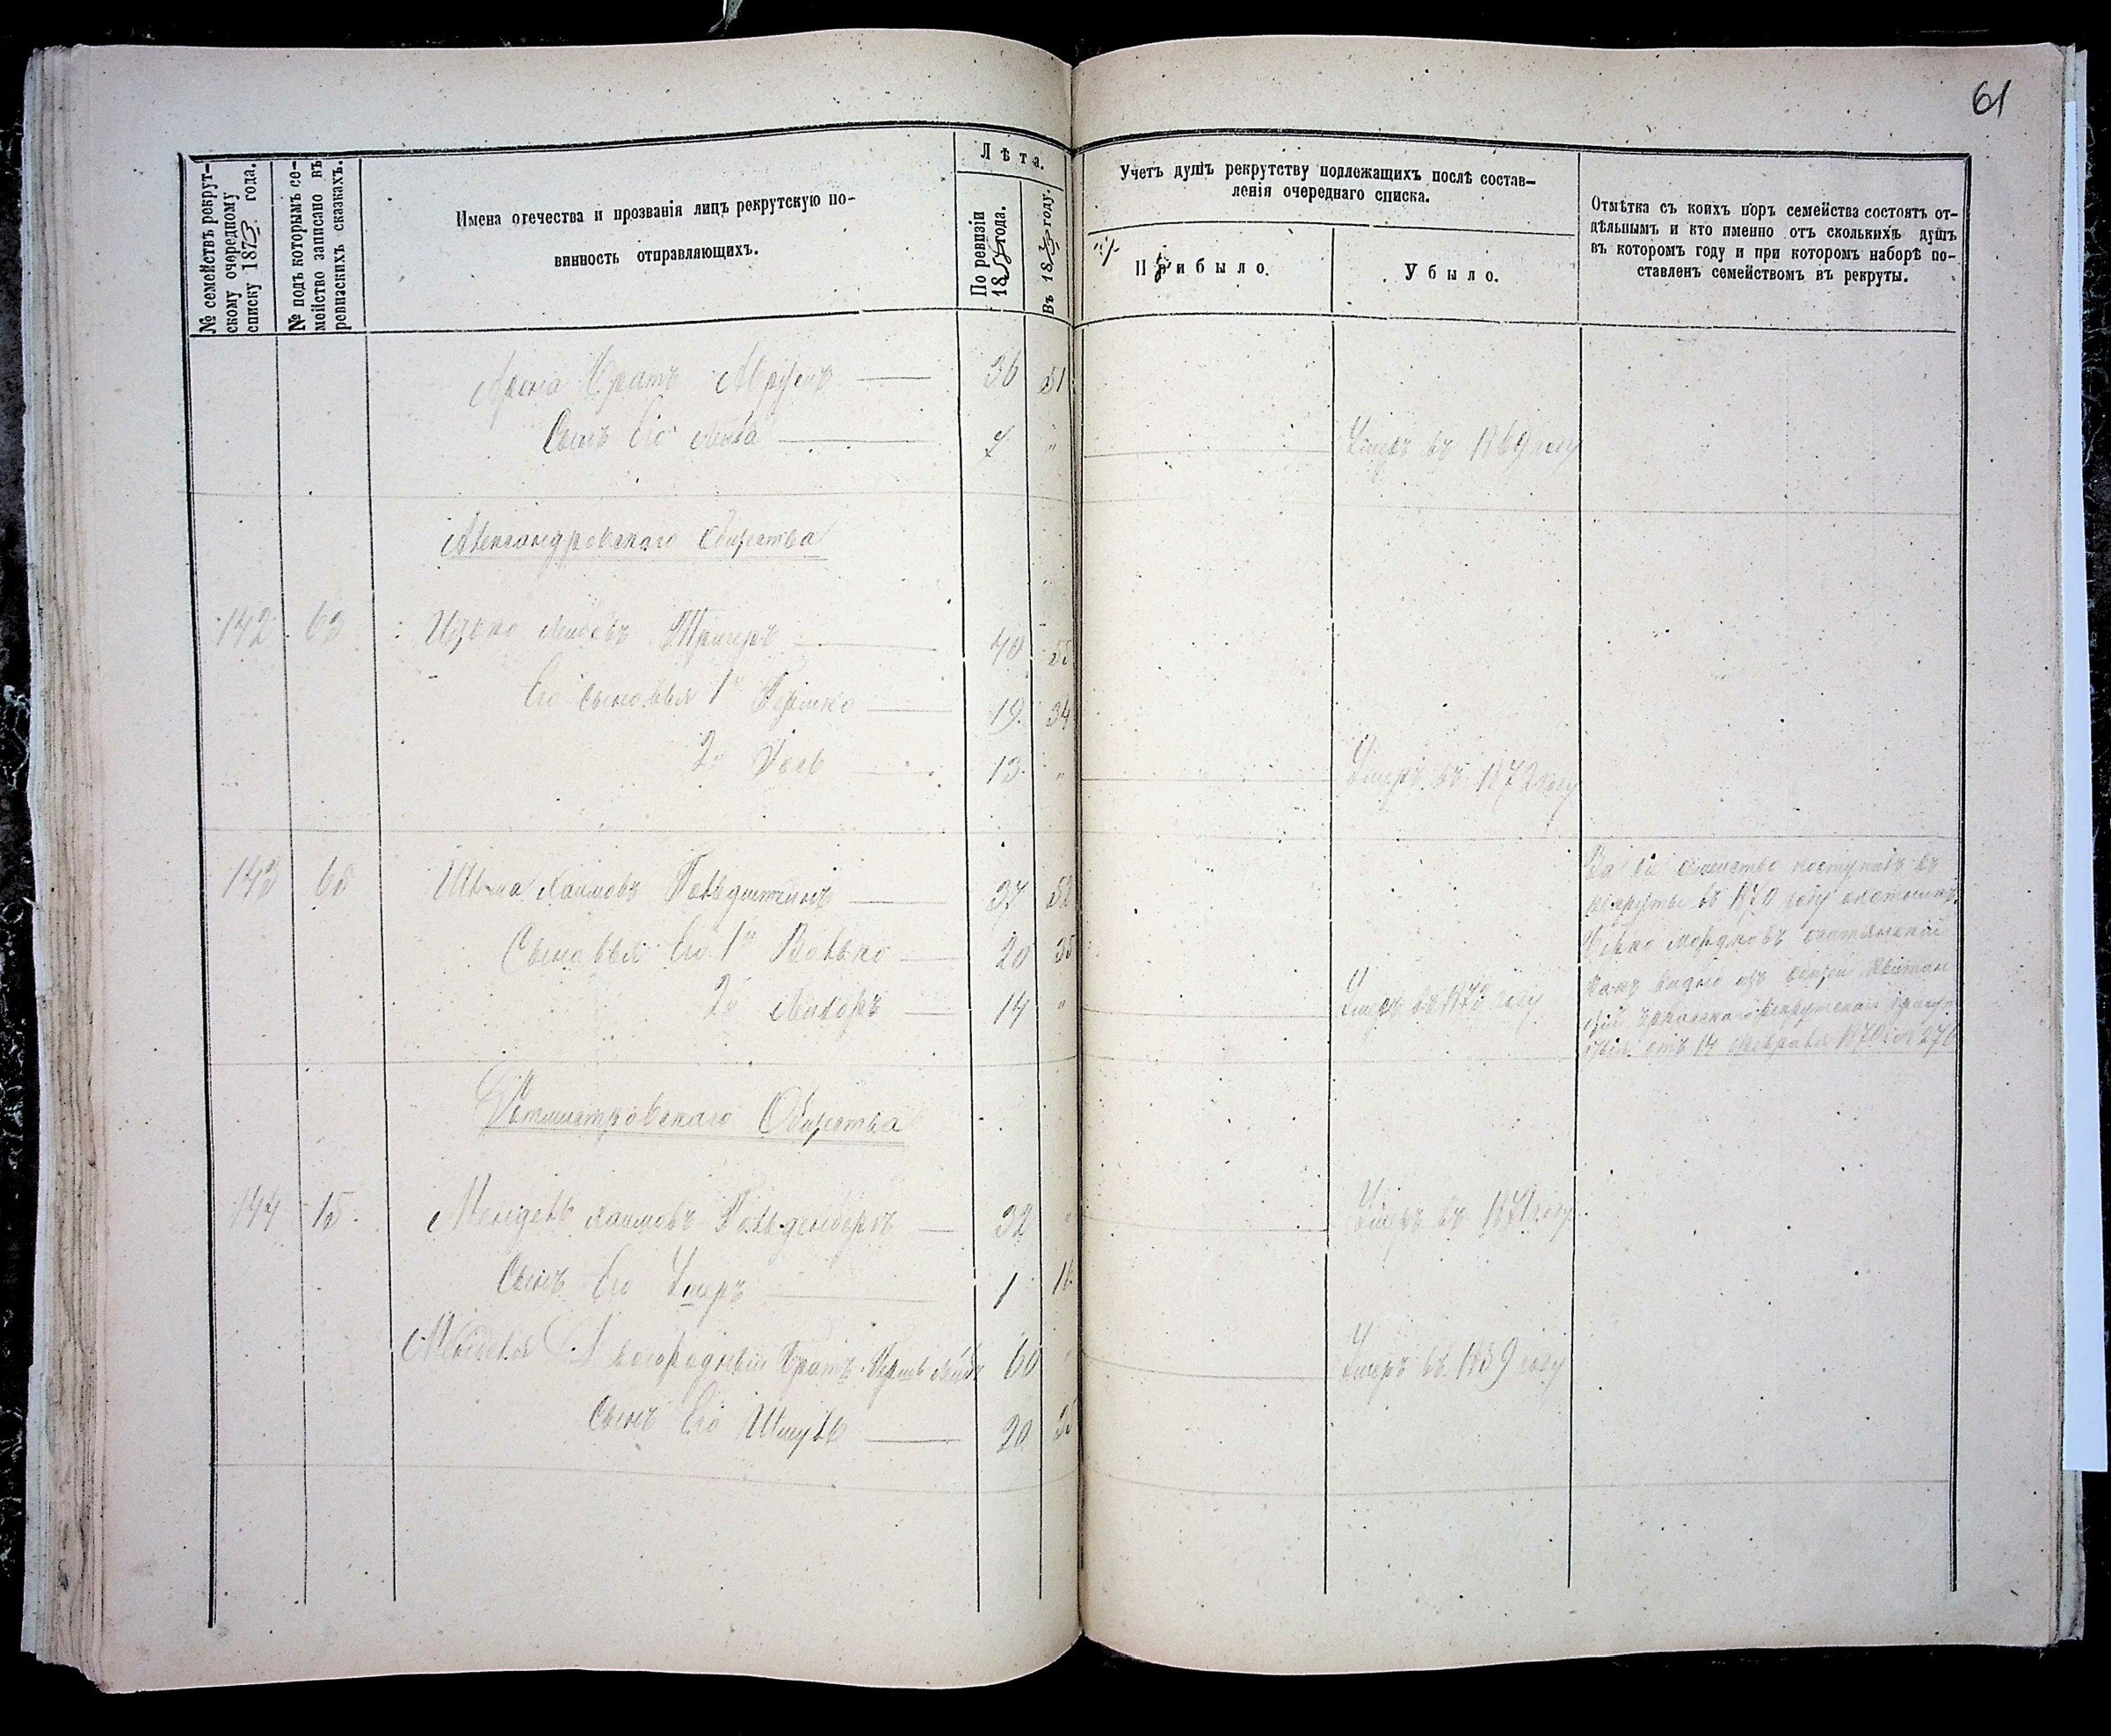 61
№ семействъ рекрут-
скому очередному
списку 1873 года.
№ подъ которымъ се-
мейство записано въ
ревизскихъ сказкахъ.
Имена отечества и прозванія лицъ рекрутскую по-
винность отправляющихъ.
Лѣта.
По ревизіи
18 года.
Въ 1873 году.
Учетъ душъ рекрутству подлежащихъ послѣ состав-
ленія очереднаго списка.
Прибыло.
Убыло.
Отмѣтка съ коихъ поръ семейства состоятъ от-
дѣльнымъ и кто именно отъ сколькихъ душъ
въ которомъ году и при которомъ наборѣ по-
ставленъ семействомъ въ рекруты.
братъ 36 51
Сынъ Его Лейба " Умеръ въ 1869 году
Александровскаго Общества
142 63 Ицко Лейбовъ 40 55
Его сыновья 1й Гершко 19 34
2й 13 " Умеръ въ 1872 году
143 Хаимовъ Гольдштейнъ 37 52
Сыновья Его 1й Волько 20 35
2й Лейзоръ 14 " Умеръ въ 1873 году
За сіе семейство поступилъ въ
рекруты въ 1870 году охотникъ
какъ видно изъ общей квитан-
ціи рекрутскаго
отъ 14 Февраля 1870 за № 276
Ротмистровскаго Общества
144 15 Мендель Хаимовъ Гольденбергъ 32 " Умеръ въ 1871 году
Сынъ Его 1 16
Менделя Двоюродный братъ Гершъ 60 " Умеръ въ 1859 году
Сынъ Его Шмуль 20 35